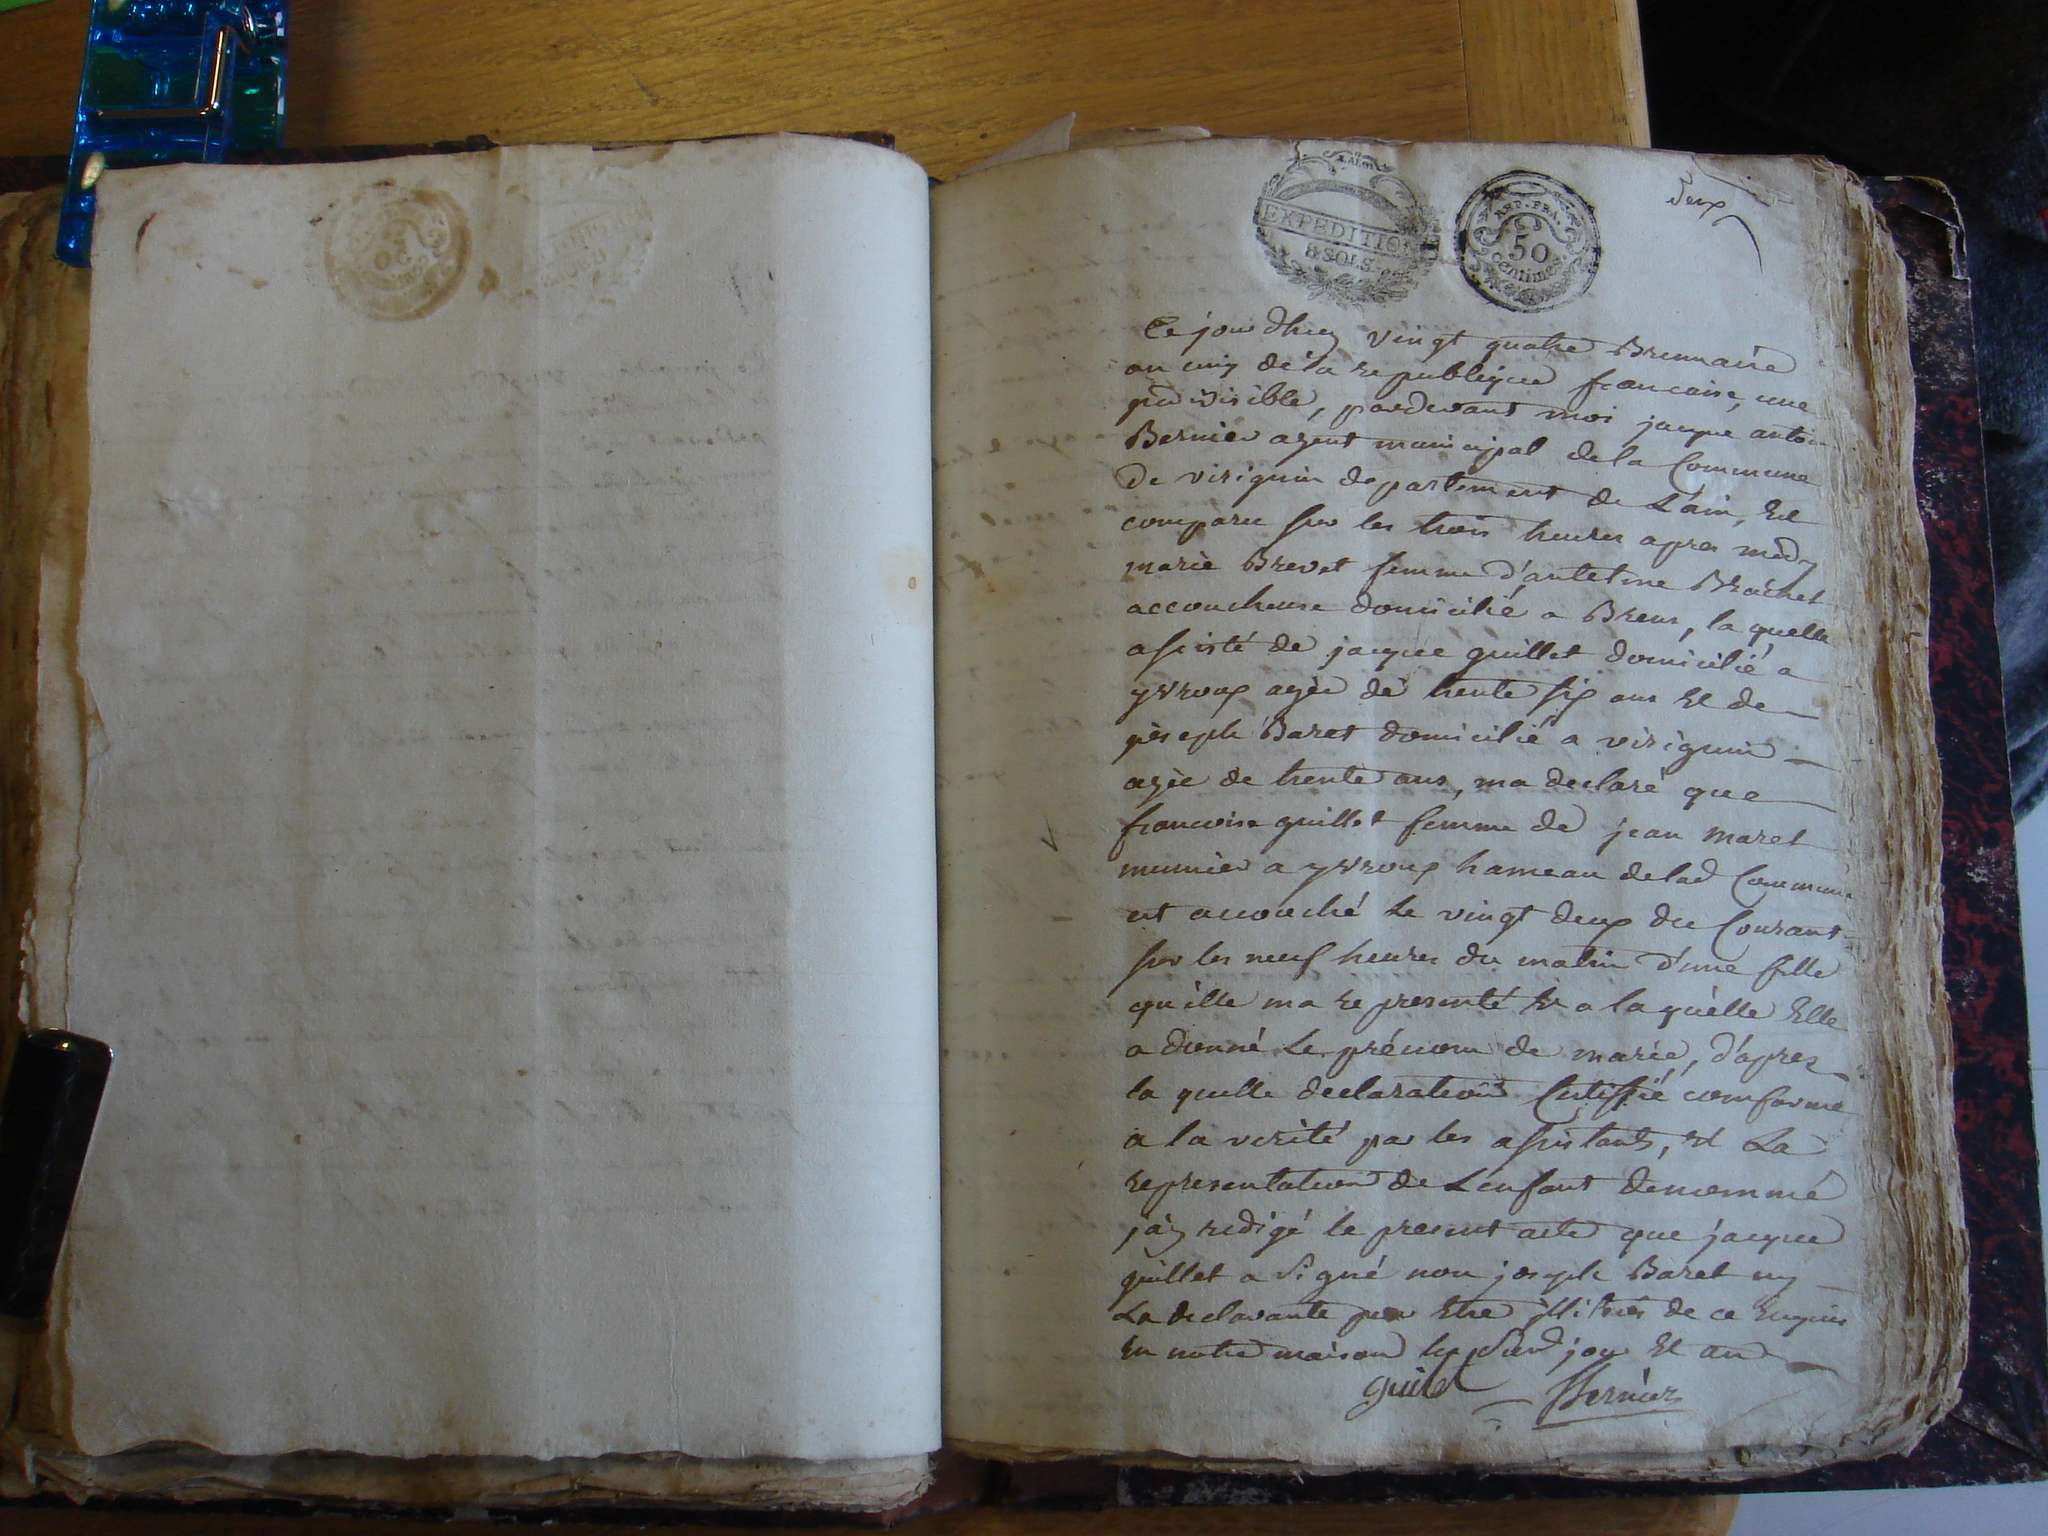 Deux
EXPEDITION
8 SOLS
REP. FRA.
50
centimes
Ce jourdhuy vingt quatre Brumaire
an cinq de la republique francaise, une
indivisible, pardevant moi jacque antoi
Bernier agent municipal de la Commune
de virignin departement de L'ain, Est
comparu sur les trois heures apres midy
marie Brevet femme d'antelme Brachet
accoucheuse domicilié a Brens, la quelle
assisté de jacque guillet domicilié a
yvroux agée de trente six ans Et de
joseph Baret domicilié a virignin
agée de trente ans, ma declaré que
francoise guillet femme de jean maret
munier a yvroux hameau de lad Commune
est accouché Le vingt deux du Courant
sur les neuf heures du matin d'une fille
qu'elle ma representé Et a la quelle Elle
a donné Le prénom de marie, d'apres
la quelle declaration Certifié comforme
a la verité par les assistants, et La
representation de Lenfant denommé
j'ay redigé le present acte que jacque
guillet a signé non joseph Baret ny
La declarante pour Etre illitrés de ce Enquis
En notre maison les susd jour Et an
guilet Bernier